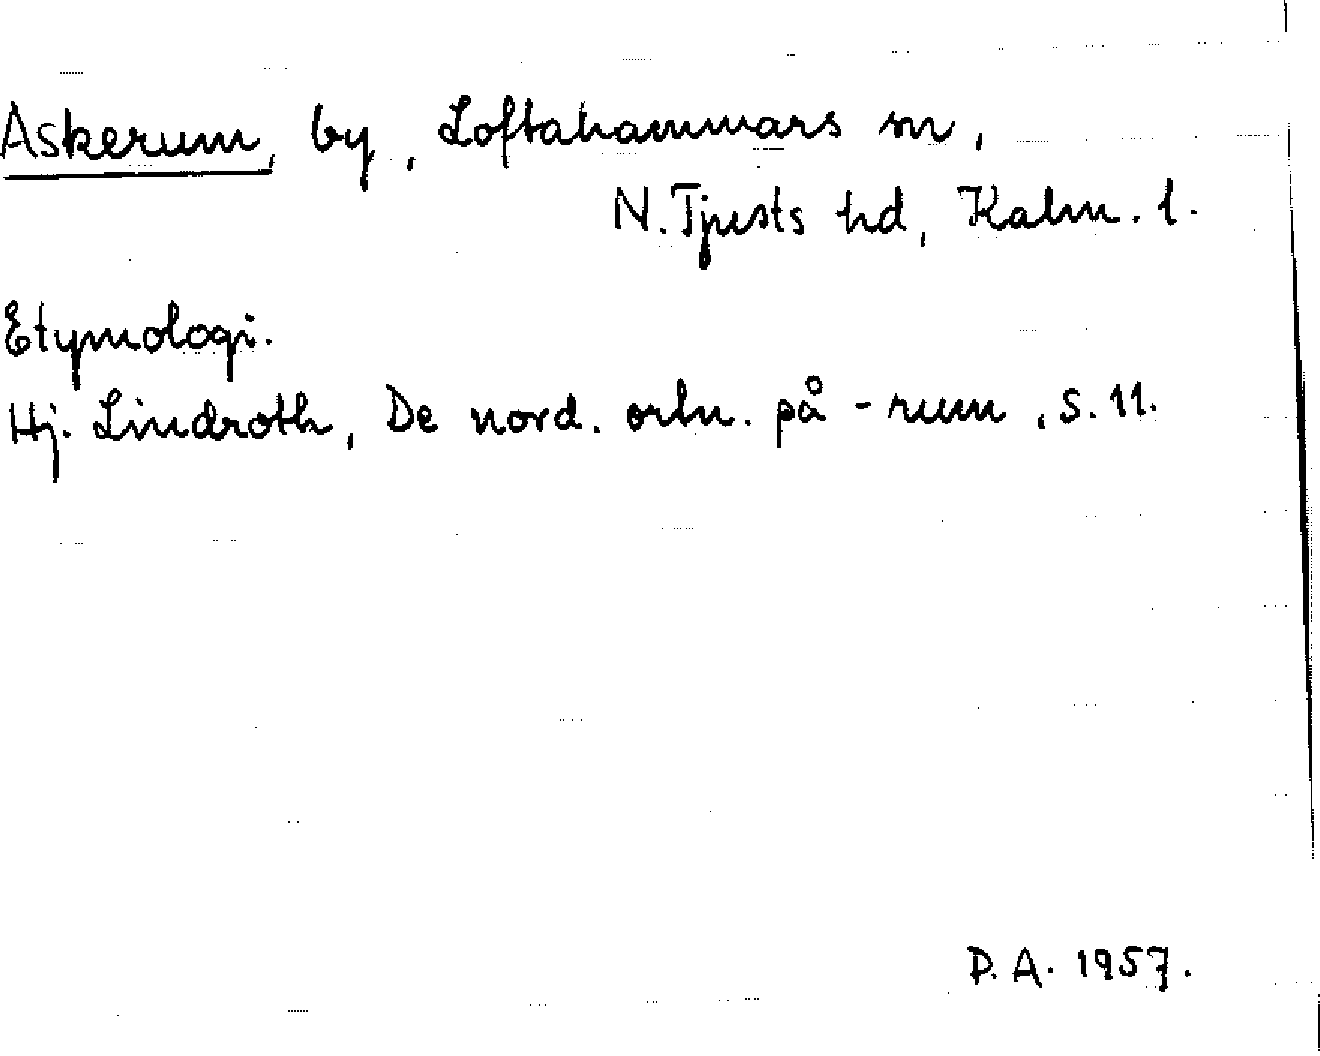 Askerum, by, Loftahammars sn,
N. Tjusts hd, Kalm. l.
Etymologi.
Hj. Lindroth, De nord. ortn. på -rum, s. 11.
P. A. 1957.